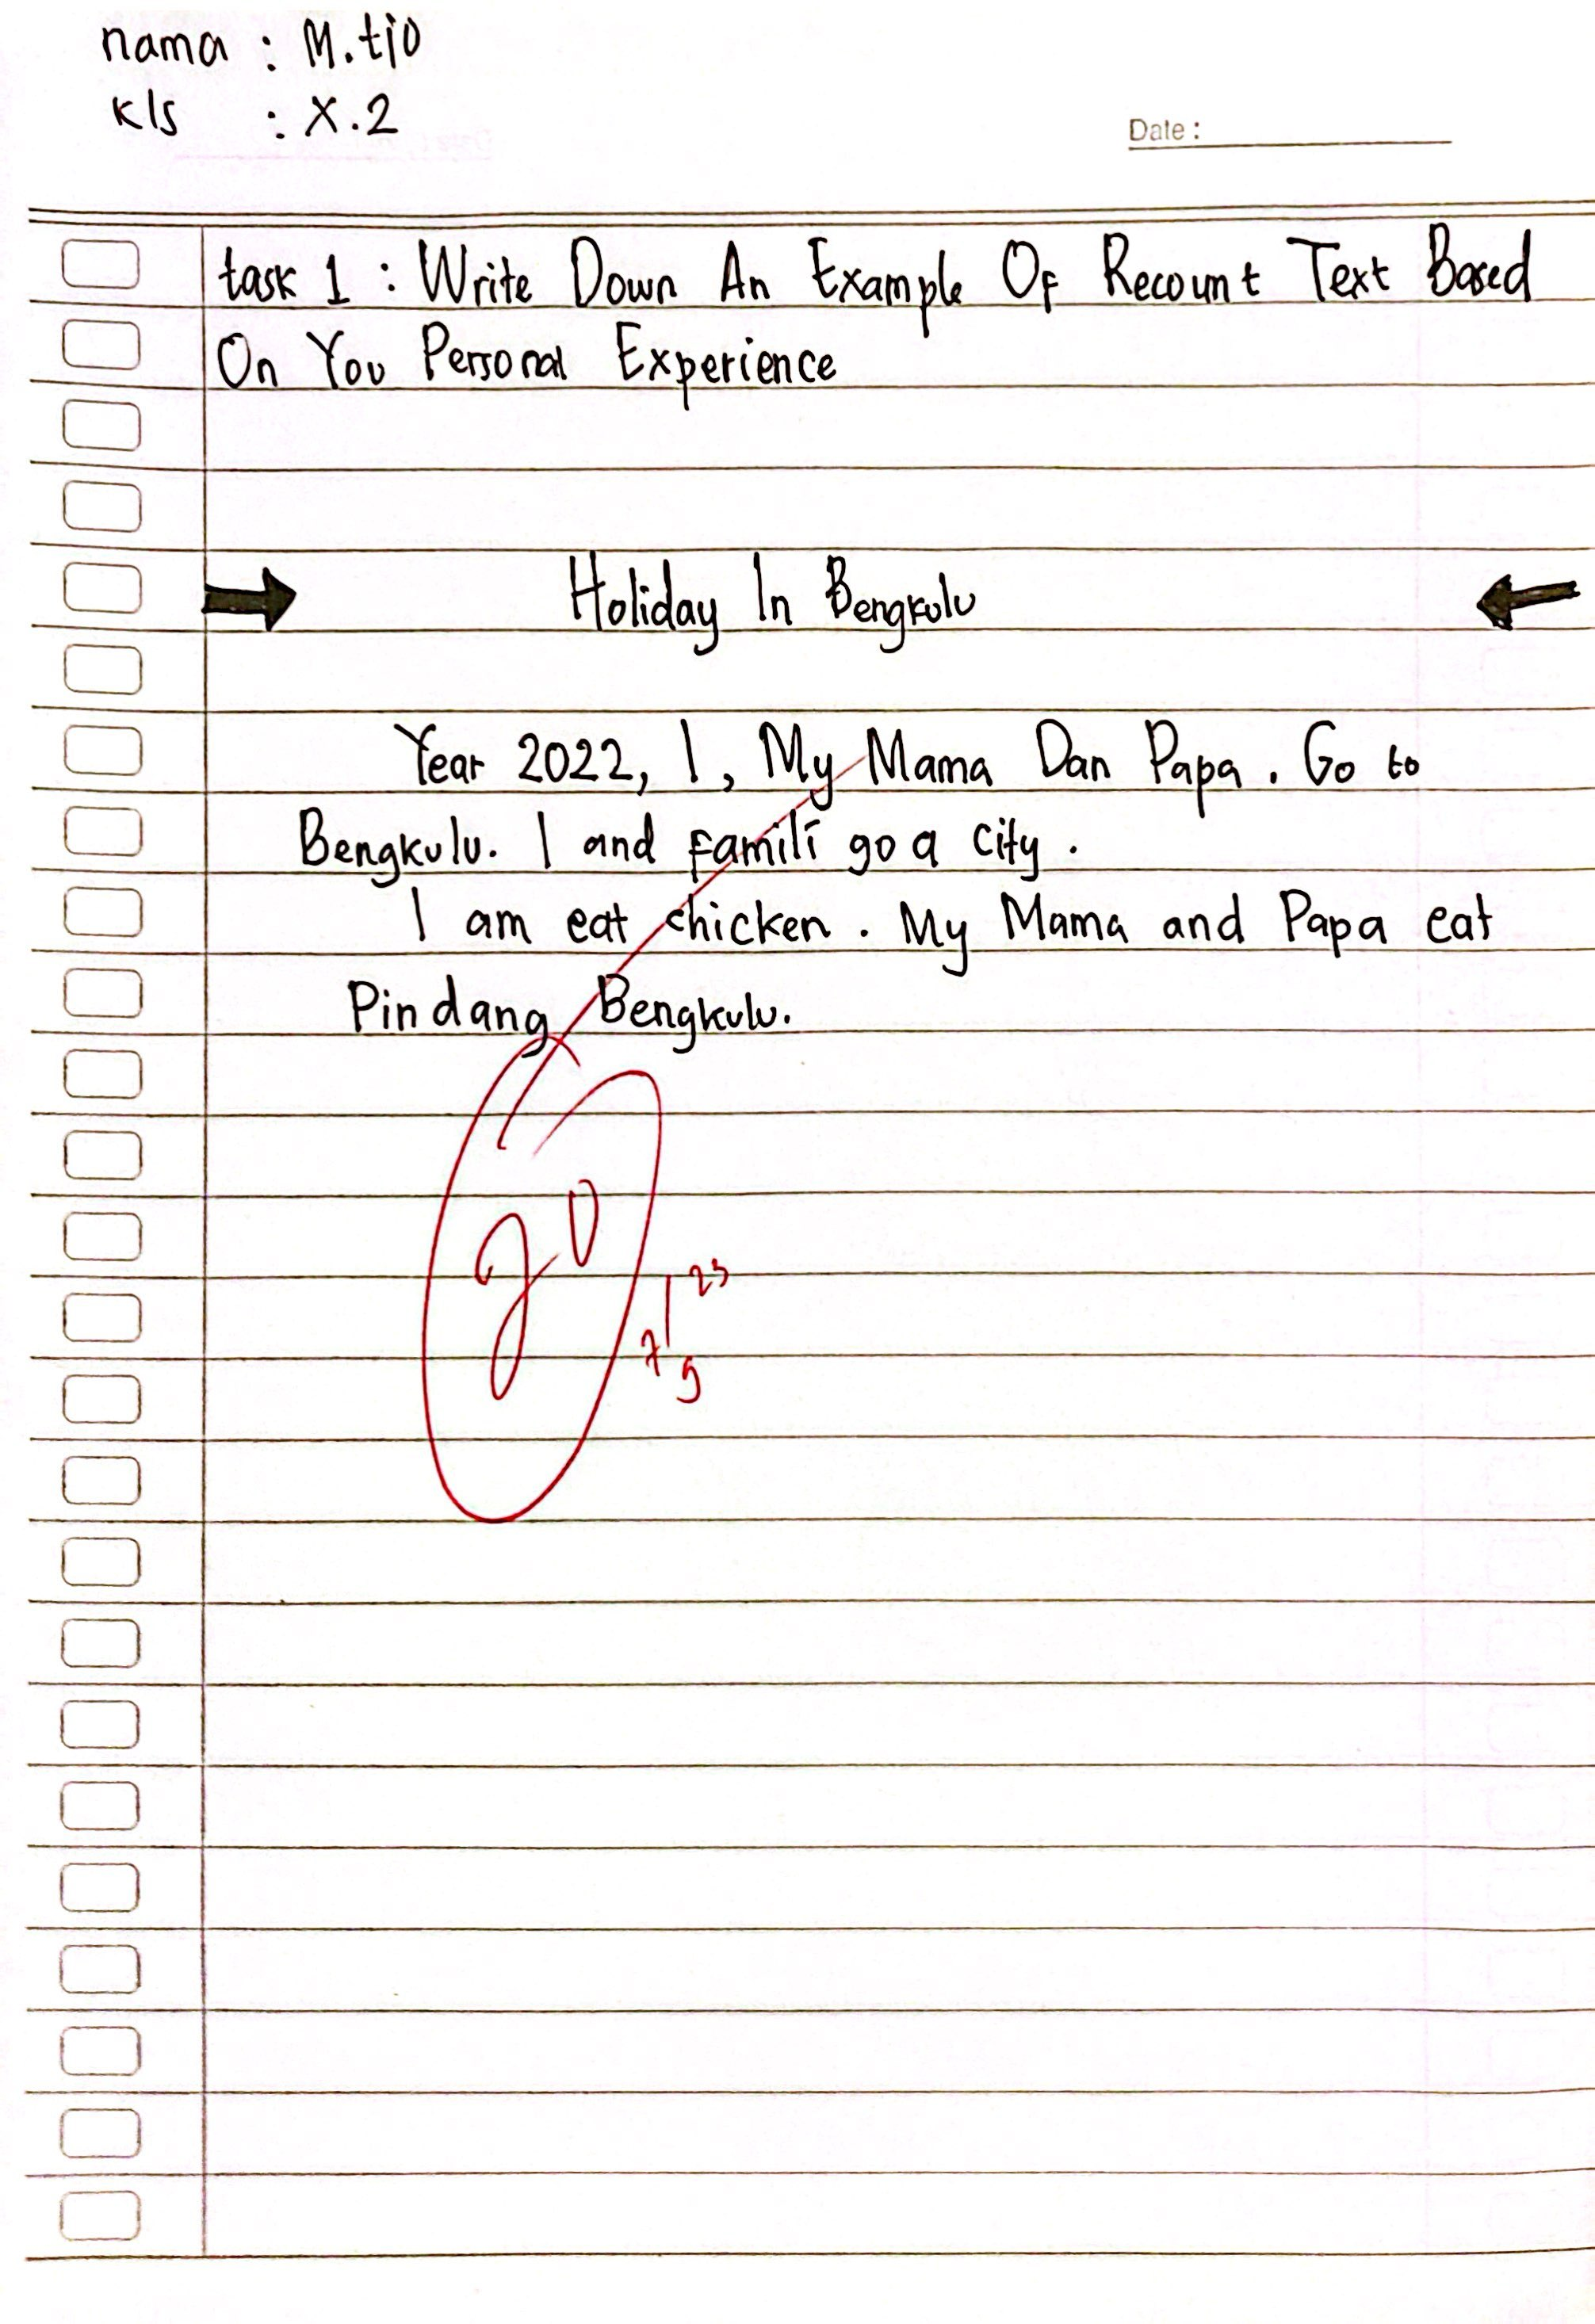 nama : M.tio
kls : X.2
Date :
task 1 : Write Down An Example Of Recount Text Based
On You Personal Experience
Holiday In Bengkulu
Year 2022, I, My Mama Dan Papa. Go to
Bengkulu. I and Famili go a city.
I am eat chicken. My Mama and Papa eat
Pindang Bengkulu.